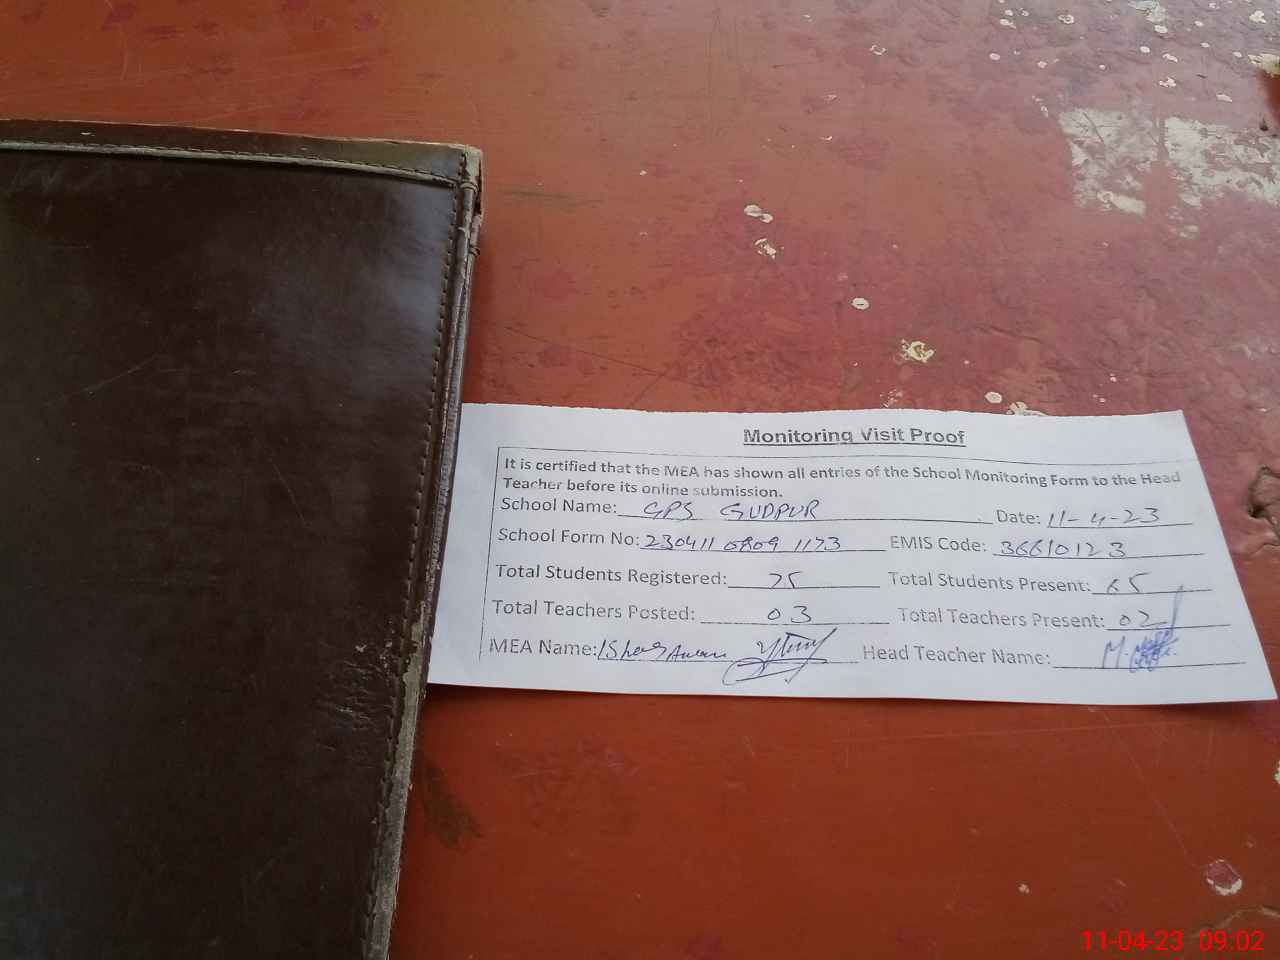 Monitoring Visit Proof
It is certified that the MEA has shown all entries of the School Monitoring Form to the Head
Teacher before its online submission.
School Name: GPS GUDPUR Date: 11-4-23
School Form No: 230411 0809 1173 EMIS Code: 36610123
Total Students Registered: 75 Total Students Present: 65
Total Teachers Posted: 03 Total Teachers Present: 02
MEA Name: Ishaq Awan Head Teacher Name: M.
11-04-23 09:02